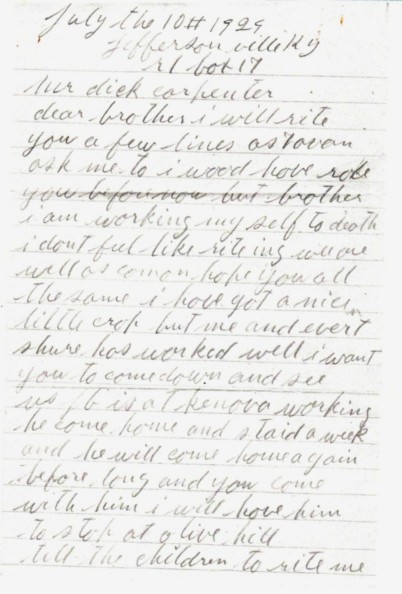 July the 10th 1929
Jeffersonville Ky
r1 box 17
mr dick carpenter
dear brother i will rite
you a few lines as
ask me to i wood have rote
you before now but brother
i am working my self to death
i dont feel like rite ing we are
well as comon hope you all
the same i have got a nice
little crop but me and evert
shure has worked well i want
you to come down and see
us is at Kenova working
he come home and staid a week
and he will come home again
before long and you come
with him i will have him
to stop at olive hill
till the children to rite me